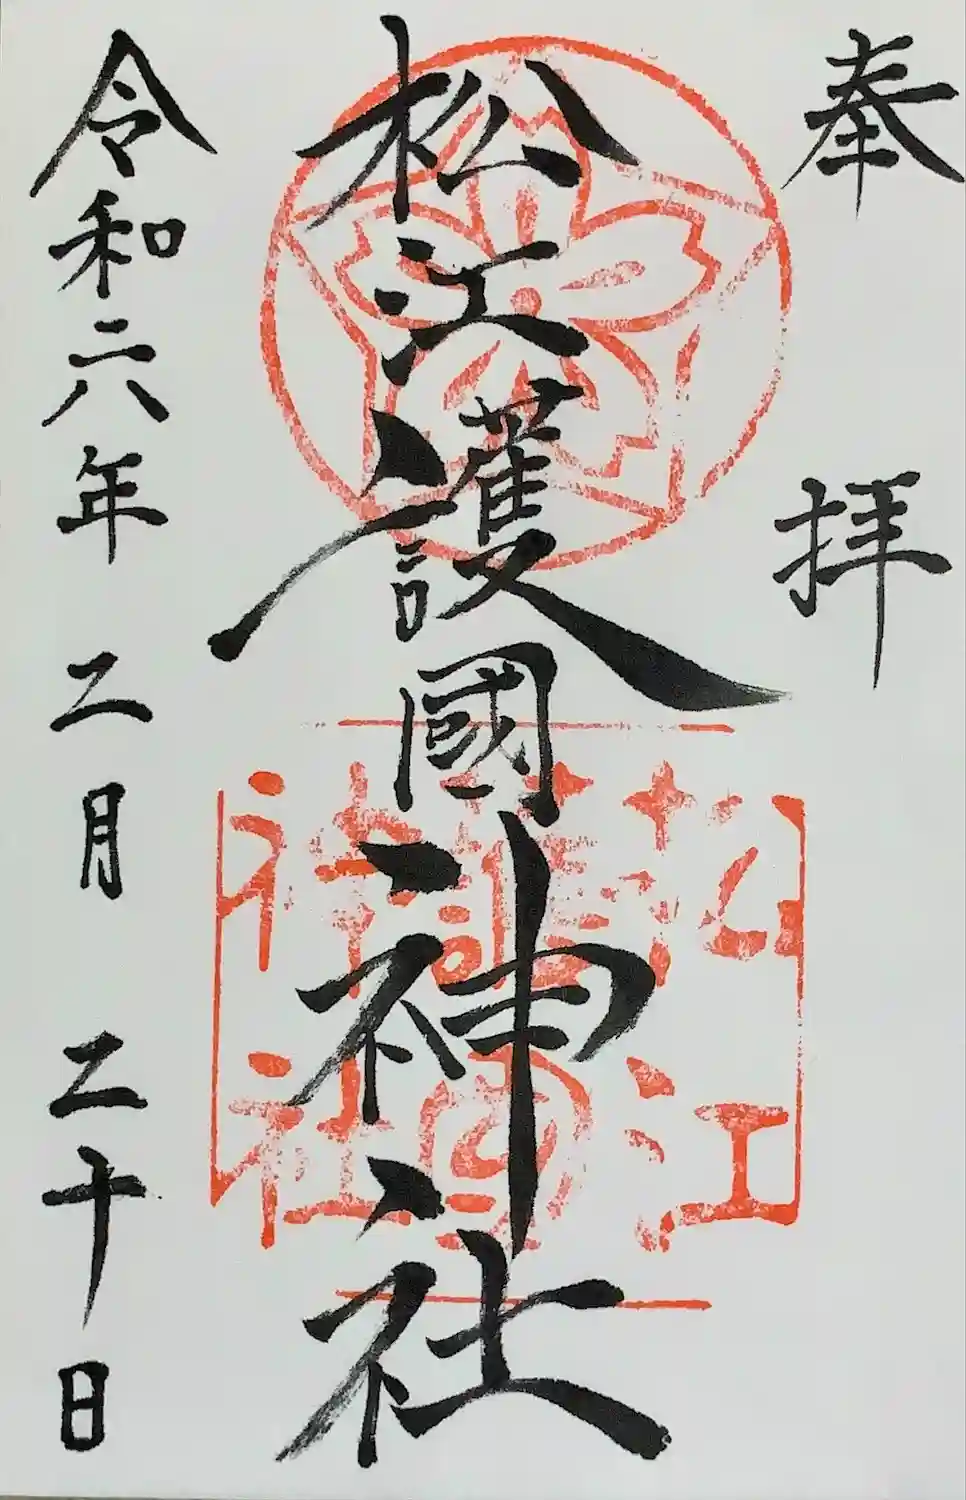 奉拝
松江護國神社
松江護國神社
令和六年二月二十日